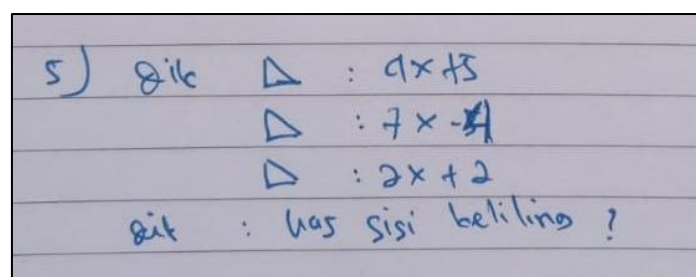 5) Dik : 9x+5
: 7x-4
: 2x+2
Dit : Luas sisi keliling ?